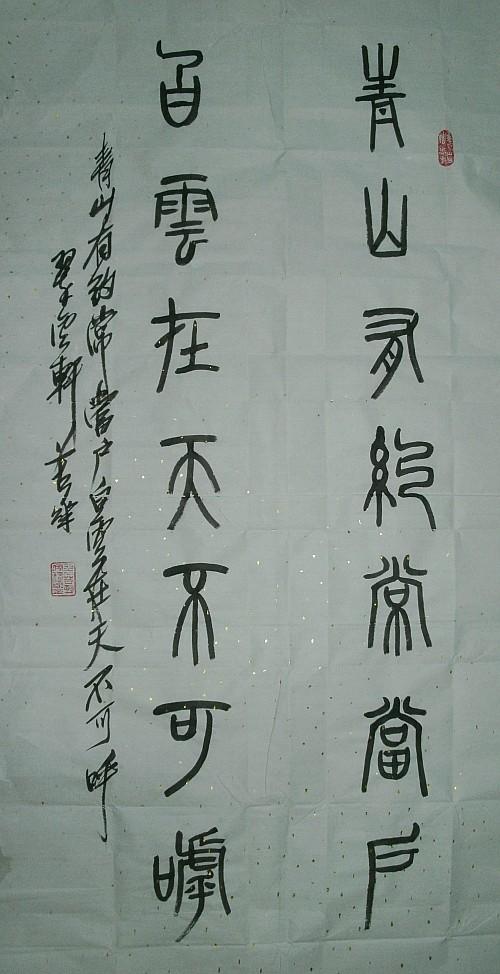 青山有約常當戶
白雲在天不可嘑
青山有約常當戶白雲在天不可呼
軒